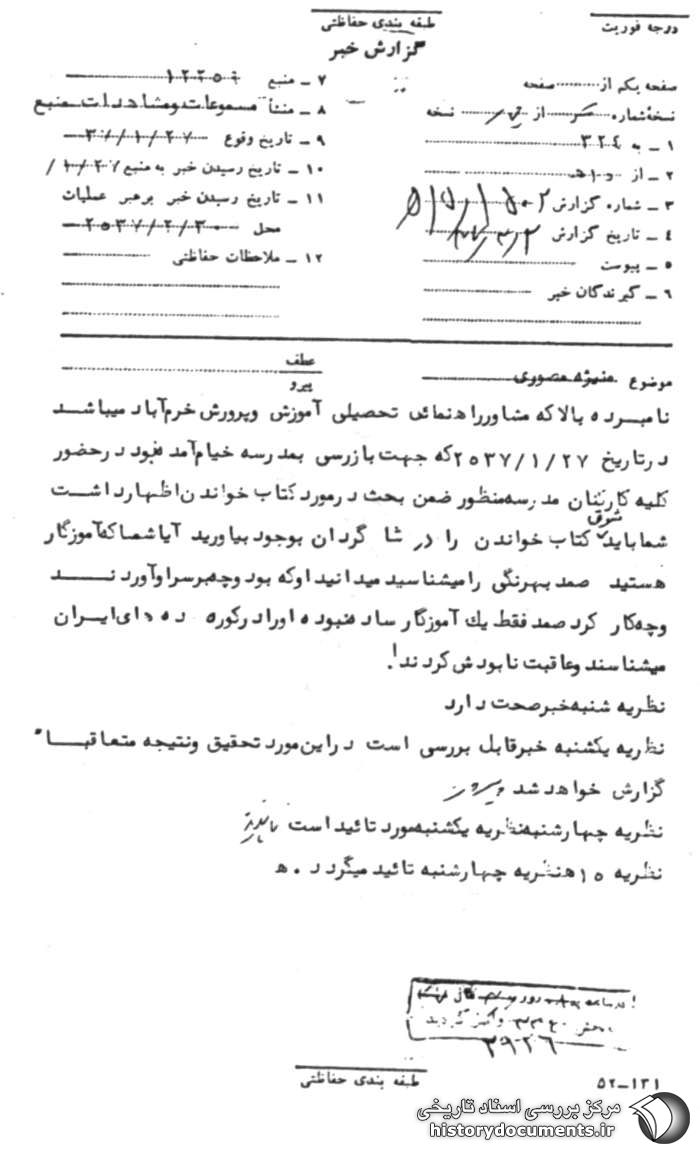 درجه فوریت
طبقه بندی حفاظتی
گزارش خبر
صفحه یکم از صفحه
نسخهٔ شماره از نسخه
۱ ـ به ۳۲۴
۲ ـ از ۱۵ ه
۳ ـ شماره گزارش
۴ ـ تاریخ گزارش
۵ ـ پیوست
۶ ـ گیرندگان خبر
۷ ـ منبع
۸ ـ منشأ مسموعات و مشاهدات منبع
۹ ـ تاریخ وقوع ۳۷/۱/۲۷
۱۰ ـ تاریخ رسیدن خبر به منبع ۱/۲۷/
۱۱ ـ تاریخ رسیدن خبر برهبر عملیات
محل ۲۵۳۷/۲/۳۰
۱۲ ـ ملاحظات حفاظتی
موضوع منیژه منصوری
عطف
پیرو
نامبرده بالا که مشاور راهنمائی تحصیلی آموزش وپرورش خرم آباد میباشد
درتاریخ ۲۵۳۷/۱/۲۷ که جهت بازرسی بمدرسه خیام آمده بود درحضور
کلیه کارکنان مدرسه منظور ضمن بحث درمورد کتاب خواندن اظهارداشت
شما باید شوق کتاب خواندن را در شاگردان بوجود بیاورید آیا شما که آموزگار
هستید صمد بهرنگی را میشناسید میدانید او که بود وچه برسر او آوردند
وچه کار کرد صمد فقط یك آموزگار ساده نبوده او را در کوره ده های ایران
میشناسند وعاقبت نابودش کردند!
نظریه شنبه خبر صحت دارد
نظریه یکشنبه خبر قابل بررسی است دراین مورد تحقیق ونتیجه متعاقباً
گزارش خواهد شد
نظریه چهارشنبه نظریه یکشنبه مورد تائید است
نظریه ۱۵ ه نظریه چهارشنبه تائید میگردد . ه
۳۹۲۶
طبقه بندی حفاظتی
۵۲-۱۳۱
مرکز بررسی اسناد تاریخی
historydocuments.ir